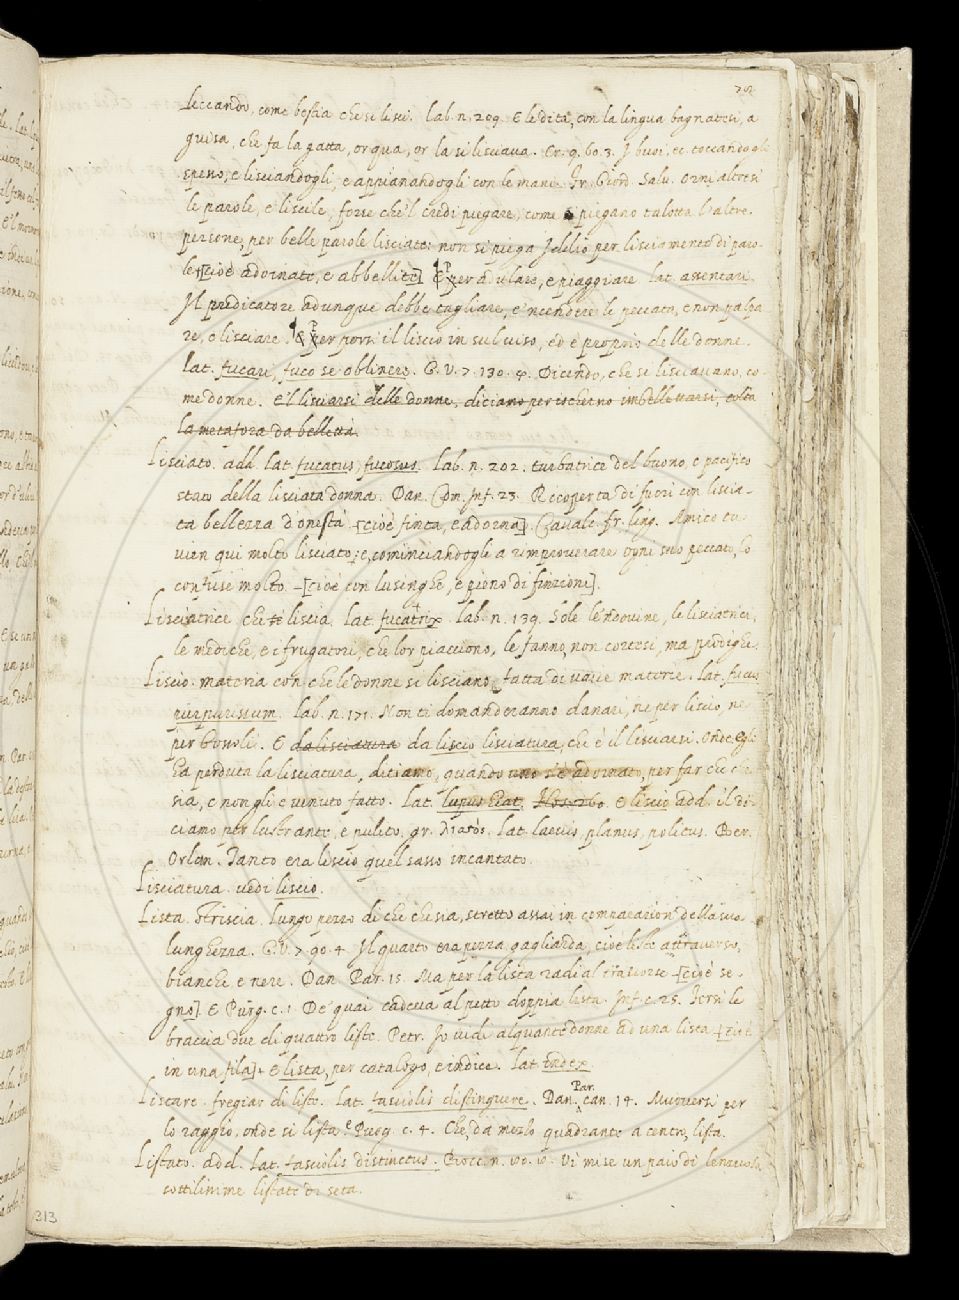 702
leccando, come bestia che si lisci. Lab. n. 209. E le dita, con la lingua bagnatesi, a
guisa, che fa la gatta, or qua, or la si lisciava. Cr. 9. 60. 3. I buoi, ec. toccandogli
spesso, e lisciandogli, e appianandogli con le mani. Fr. Giord. Salv. Orni altresì
le parole, e liscile, forse che 'l credi piegare, come si piegano talotta l'altre
persone, per belle parole lisciate: non si piega Iddio per lisciamento di paro-
le [cioè adornate, e abbellite] E per adulare, e piaggiare lat. assentari.
Il predicatore adunque debbe tagliare, e 'ncendere le peccata, e non palpa
re, e lisciare. E per porsi il liscio in sul viso, ed è proprio delle donne.
lat. fucari, fuco se oblinere. G. V. 7. 130. 4. Dicendo, che si lisciavano, co-
me donne. E 'l lisciarsi delle donne, diciamo per ischerno imbellettarsi, tolta
la metafora da belletta.
Lisciato. add. lat. fucatus, fucosus. Lab. n. 202. turbatrice del buono, e pacifico
stato della lisciata donna. Dan. Con. Inf. 23. Ricoperta di fuori con liscia-
ta bellezza d'onestà [cioè finta, e adorna]. Cavalc. fr. ling. Amico tu
vien qui molto lisciato; e, cominciandogli a rimproverare ogni suo peccato, lo
confuse molto [cioè con lusinghe, e pieno di finzioni].
Lisciatrice che liscia. Lat. fucatrix. Lab. n. 139. Sole le 'ndovine, le lisciatrici,
le mediche, e i frugatori, che lor piacciono, le fanno, non cortesi, ma prodighe.
Liscio. materia con che le donne si lisciano, fatta di varie materie. Lat. fucus
purpurissum. Lab. n. 171. Non ti domanderanno danari, ne per liscio, ne
per bossoli. E da lisciatura da liscio lisciatura, che è il lisciarsi. Onde Egli
ha perduta la lisciatura, diciamo, quando uno s'è adornato, per far che che
sia, e non gli è venuto fatto. Lat. lupus hiat. E liscio add. il di-
ciamo per lustrante, e pulito. gr. λιατός. Lat. laevis, planus, politus. Ber.
Orlan. Tanto era liscio quel sasso incantato.
Lisciatura. vedi liscio.
Lista. Striscia. lungo pezzo di che che sia, stretto assai in comparazion della sua
lunghezza. G. V. 7. 90. 4. Il quarto era pezza gagliarda, cioè liste attraverso,
bianche e nere. Dan. Par. 15. Ma per la lista radial trascorse [cioè se-
gno] E Purg. c. 1. De' quai cadeva al petto doppia lista. Inf. c. 25. Fersi le
braccia due di quattro liste. Petr. Io vidi alquante donne ad una lista [cioè
in una fila] E lista, per catalogo, e indice. Lat. index.
Listare. fregiar di liste. Lat. fasciolis distinguere. Dan. Par. can. 14. Muoversi per
lo raggio, onde si lista. E Purg. c. 4. Che, da mezzo quadrante a centro, lista.
Listato. add. Lat. fasciolis distinctus. Bocc. n. 80. 10. Vi mise un paio di lenzuola
sottilissime listate di seta.
313